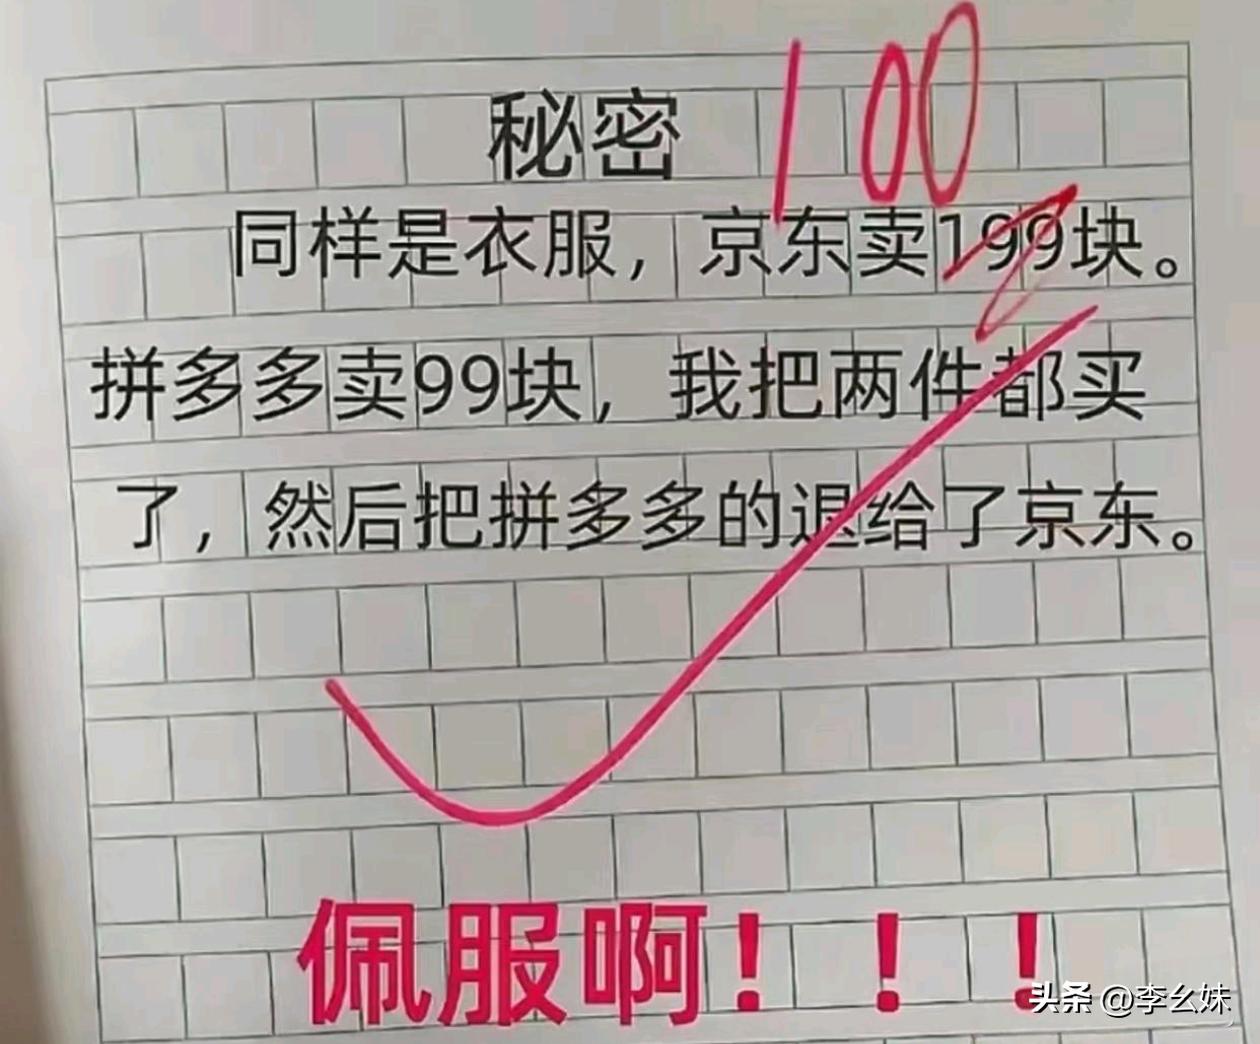 秘密 100
同样是衣服，京东卖199块。
拼多多卖99块，我把两件都买
了，然后把拼多多的退给了京东。
佩服啊！！！
头条 @李幺妹